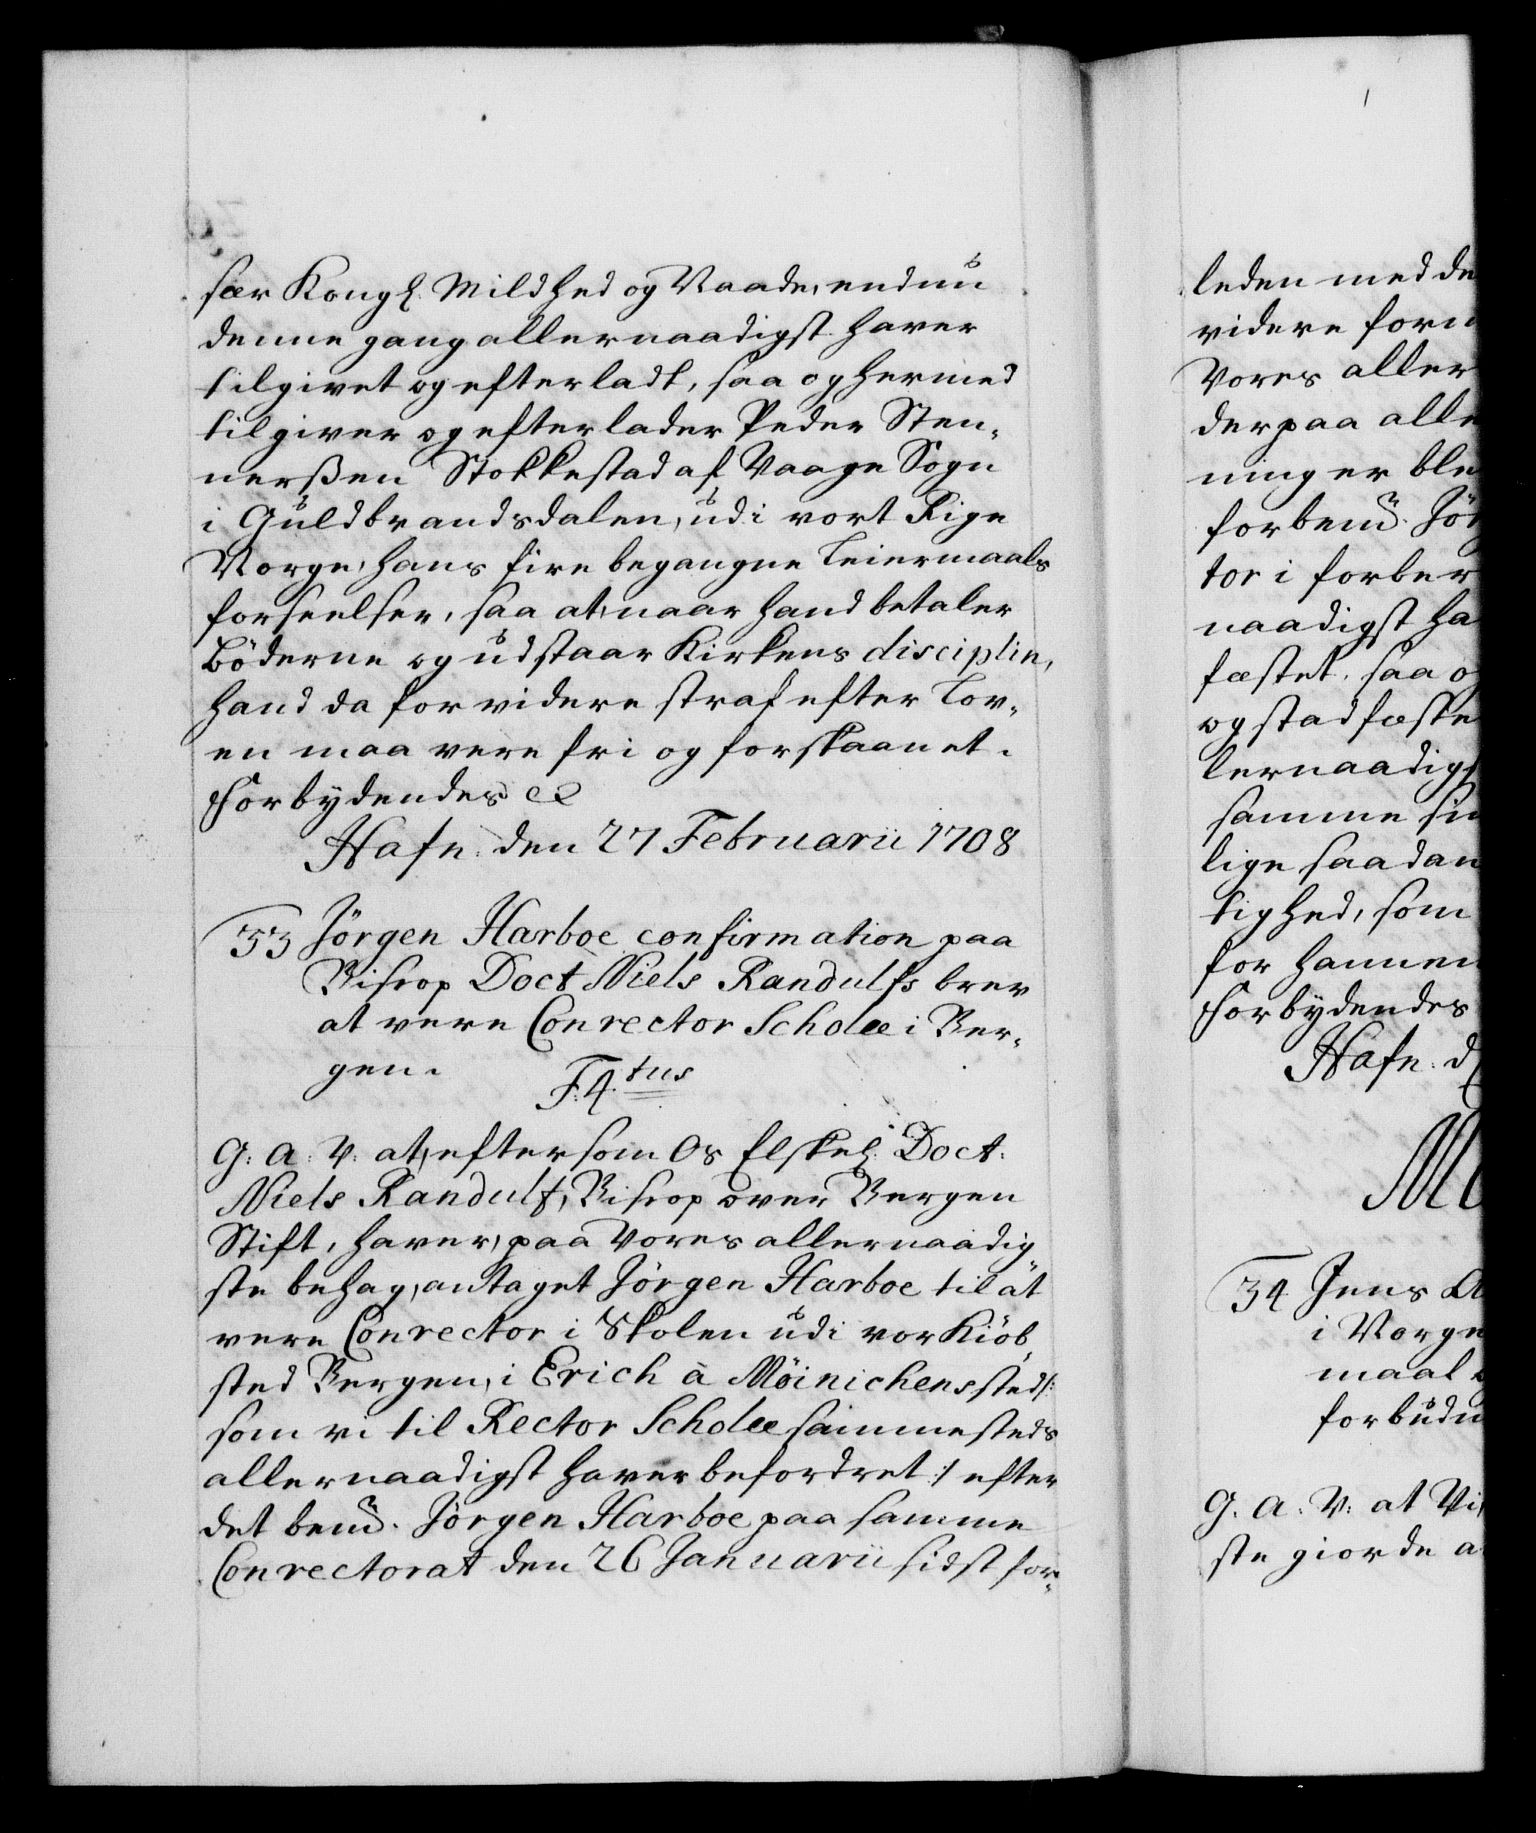 sær Kongl. Mildhed og Naade, endnu
denne gang allernaadigst haver
tilgivet og efterladt, saa og hermed
tilgiver og efterlader Peder Sten-
nerßen Stokkestad af Vaage Sogn
i Guldbrandsdalen, udi vort Rige
Norge, hans fire begangne Leiermaals
forseelser, saa at, naar hand betaler
Böderne og udstaar Kirkens disciplin,
hand da for videre straf efter Lov-
en maa vere fri og forskaanet.
Forbydendes &
Hafn. den 27 Februarii 1708
33 Jörgen Harboe confirmation paa
Biscop Doct Niels Randulfs brev
at vere Conrector Scholæ i Ber-
gen.
F. 4.tus
G: A: V: at, eftersom Os Elskel. Doct.
Niels Randulf, Biscop over Bergen
Stift, haver, paa Vores allernaadig
ste behag, antaget Jörgen Harboe til at
vere Conrector i Skolen udi vor Kiöb
sted Bergen, i Erich à Möinichens sted /:
som vi til Rector Scholæ sammesteds
allernaadigst haver befordret :/ efter
det bemd. Jörgen Harboe paa samme
Conrectorat den 26 Januarii sidst for-
leden med de
videre form
Vores aller
derpaa alle
ning er ble
forbemd. Jörg
tor i forber
naadigst ha
fæstet, saa o
og stadfæste
lernaadigs
samme sin
lige saadan
tighed, som
for hannem
Forbydendes
Hafn. d
34 Jens A
i Norge
maal
forbudn
G. A: V: at Vi
ste giorde a